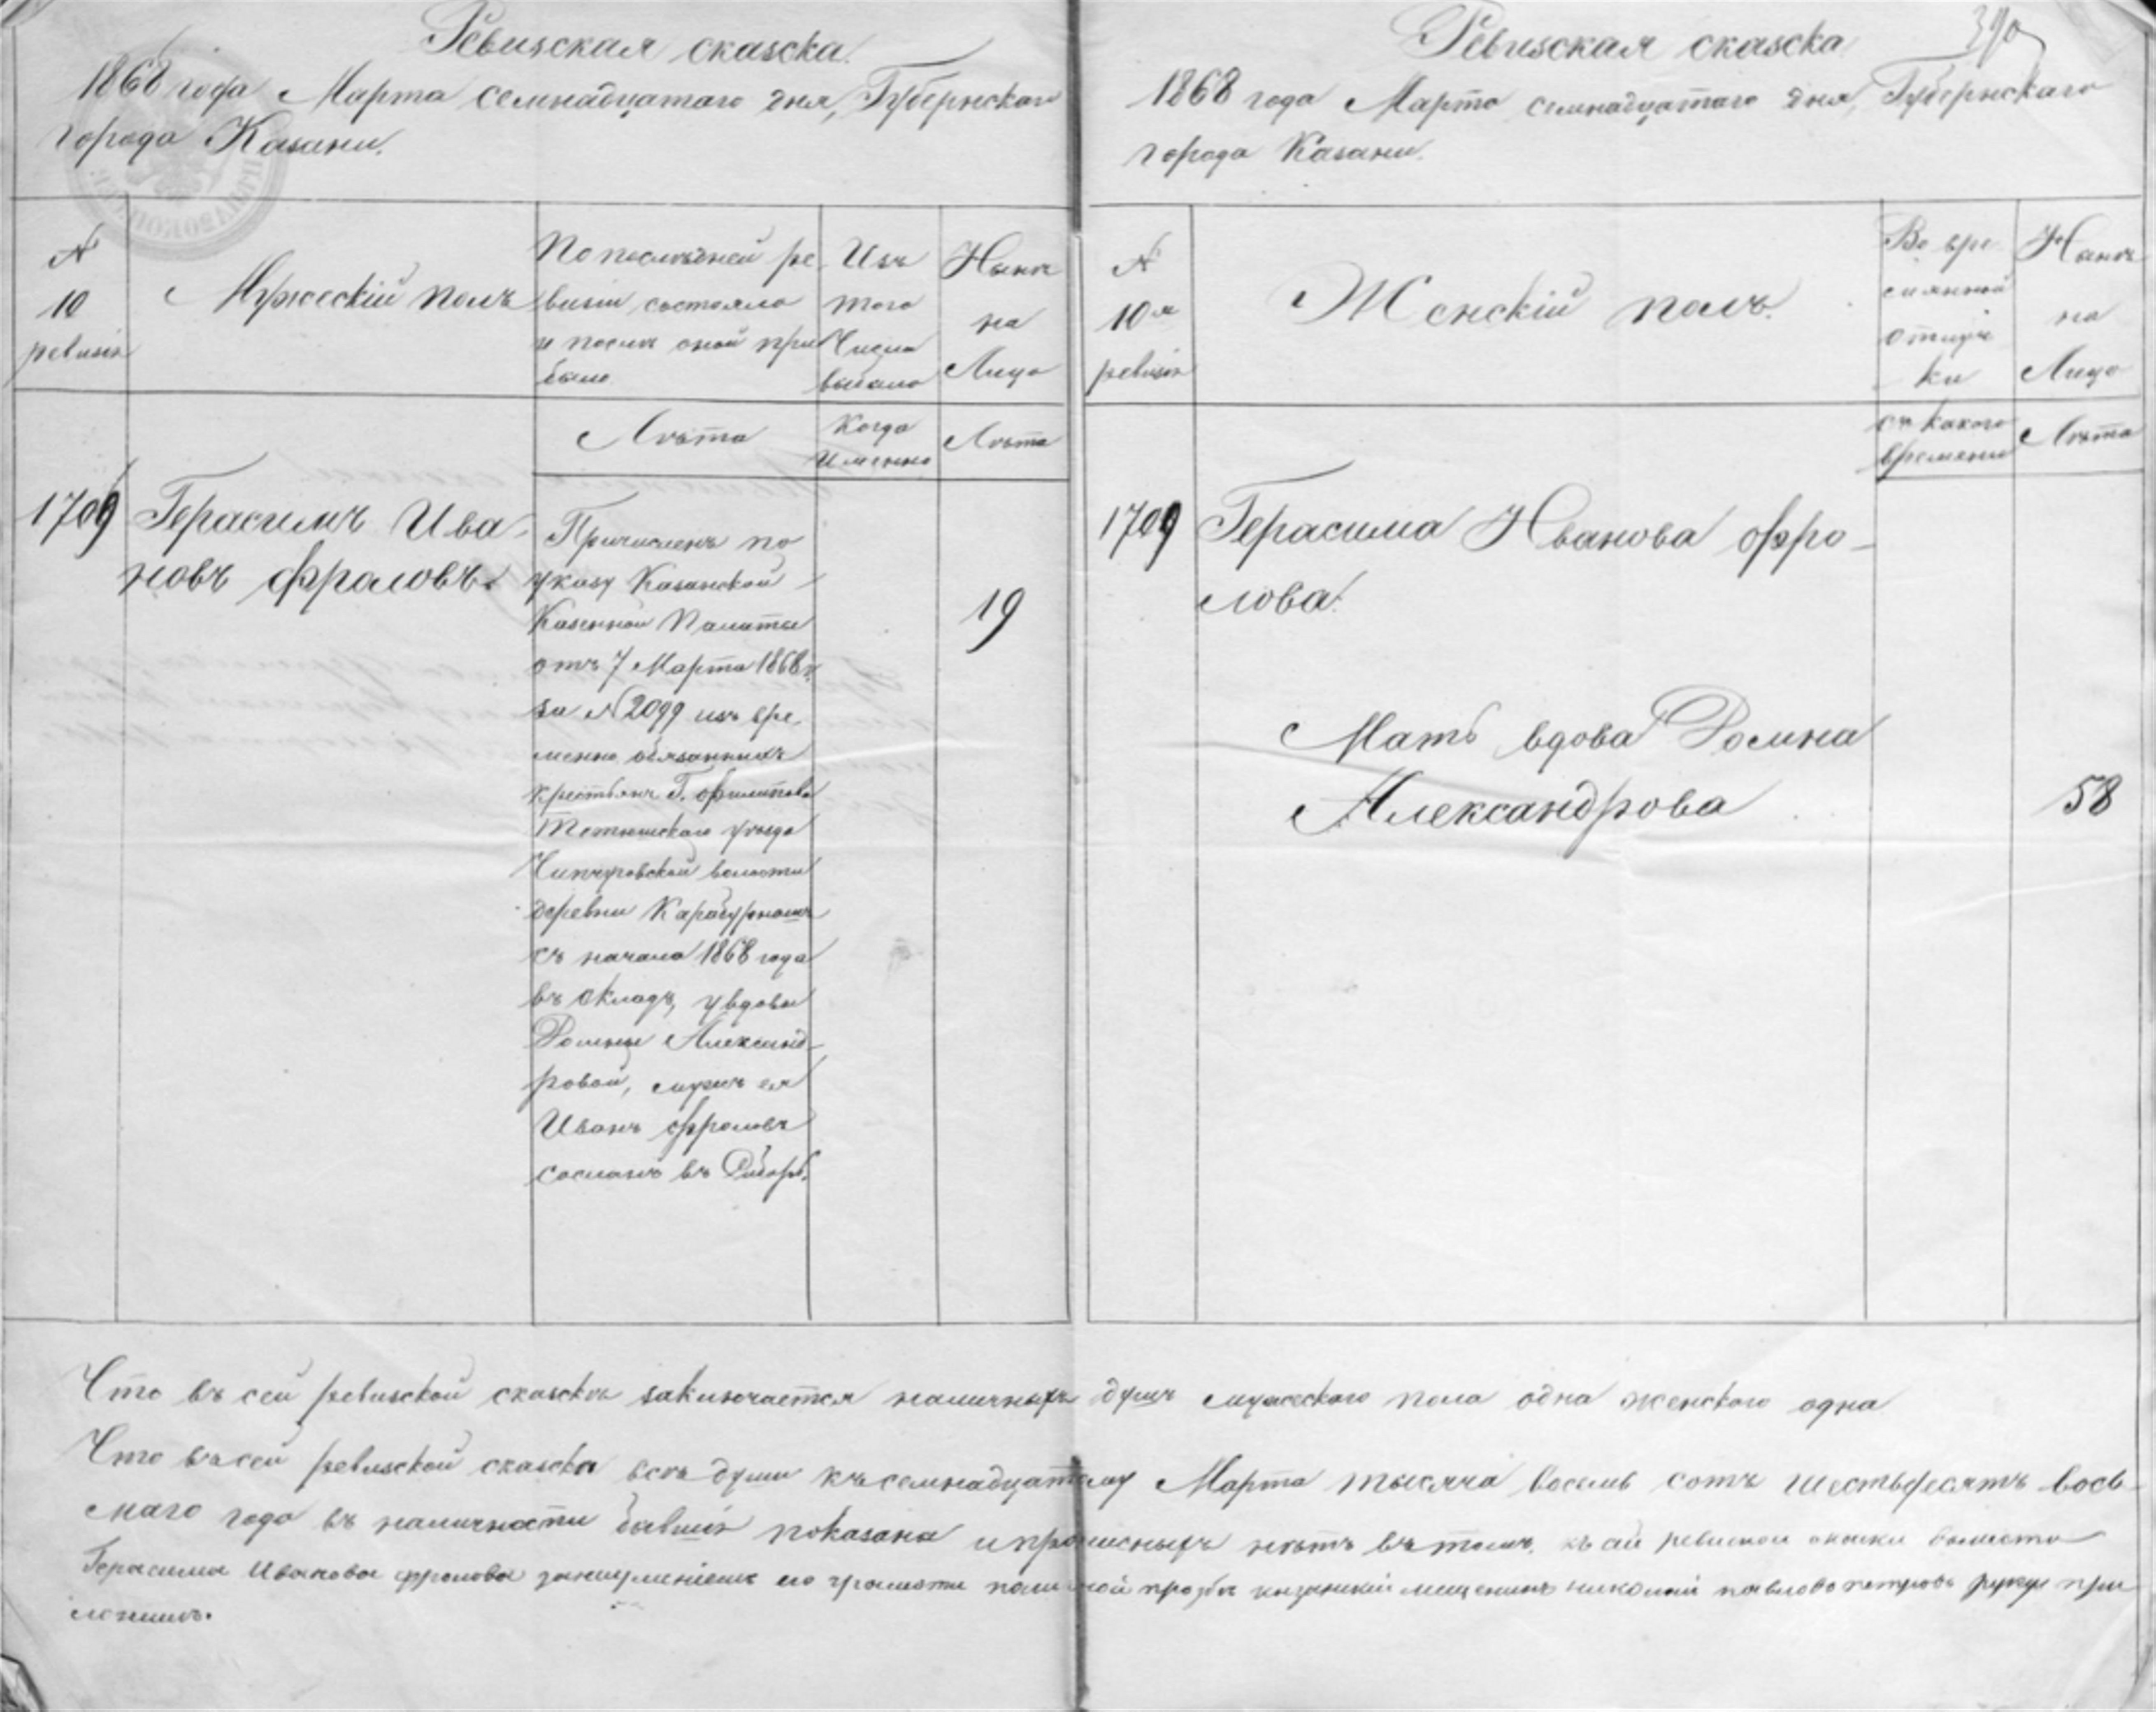 Ревизская сказска.
1868 года Марта семнадцатаго дня, Губернскаго
города Казани.
№
10
ревизіи
Мужескій полъ
По послѣдней ре-
визіи состояло
и послѣ оной при
было
Изъ
того
Числа
выбыло
Нынѣ
на
Лицо
Лѣта
Когда
Именно
Лѣта
1709
Герасимъ Ива-
новъ Фроловъ.
Причисленъ по
указу Казанской
Казенной Палаты
отъ 7 Марта 1868 г.
за №2099 изъ вре-
менно обязанныхъ
крестьянъ Г. Филипова
Тетюшскаго уѣзда
волости
деревни
съ начала 1868 года
въ окладъ, у вдовы
Домны Александ-
ровой, мужъ ея
Иванъ Фроловъ
сосланъ въ Сибирь.
19
390
Ревизская сказска
1868 года Марта семнадцатаго дня, Губернскаго
города Казани.
№
10я
ревизіи
Женскій полъ.
Во вре
менной
отлуч
ки
Нынѣ
на
Лицо
съ какого
времени
Лѣта
1709
Герасима Иванова Фро-
лова.
Мать вдова Домна
Александрова
58
Что въ сей ревизской сказскѣ заключается наличныхъ душъ мужескаго пола одна женскаго одна
Что въ сей ревизской сказскѣ всѣ души къ семнадцатому Марта тысяча восемь сотъ шестьдесятъ вось-
маго года въ наличности бывшія показана и прописныхъ нѣтъ въ томъ, къ сей ревиской скаски вместо
Герасима Иванова Фролова за неумѣніемъ его грамоти по личной прозбѣ казанскій мещенинъ николай павлово петровъ руку при
ложилъ.